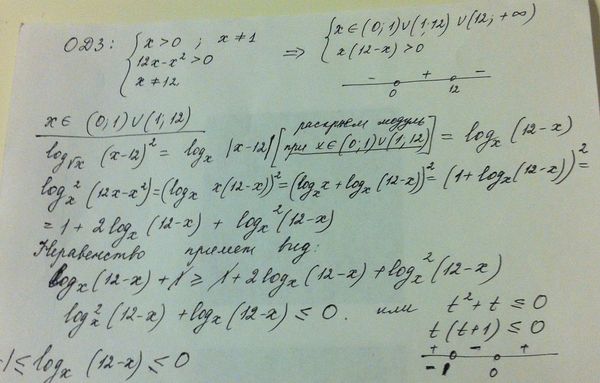 ОДЗ: { x > 0 ; x ≠ 1 ⇒ { x ∈ (0; 1) ∪ (1; 12) ∪ (12; +∞)
12x - x² > 0 x(12-x) > 0
x ≠ 12 - + -
0 12
x ∈ (0; 1) ∪ (1; 12)
log√x (x-12)² = logx |x-12| [раскроем модуль при x ∈ (0; 1) ∪ (1; 12)] = logx (12-x)
logx² (12x-x²) = (logx x(12-x))² = (logx x + logx (12-x))² = (1 + logx (12-x))² =
= 1 + 2 logx (12-x) + logx² (12-x)
Неравенство примет вид:
logx (12-x) + 1 ≥ 1 + 2 logx (12-x) + logx² (12-x)
logx² (12-x) + logx (12-x) ≤ 0. или t² + t ≤ 0
t (t+1) ≤ 0
-1 ≤ logx (12-x) ≤ 0 + - +
-1 0